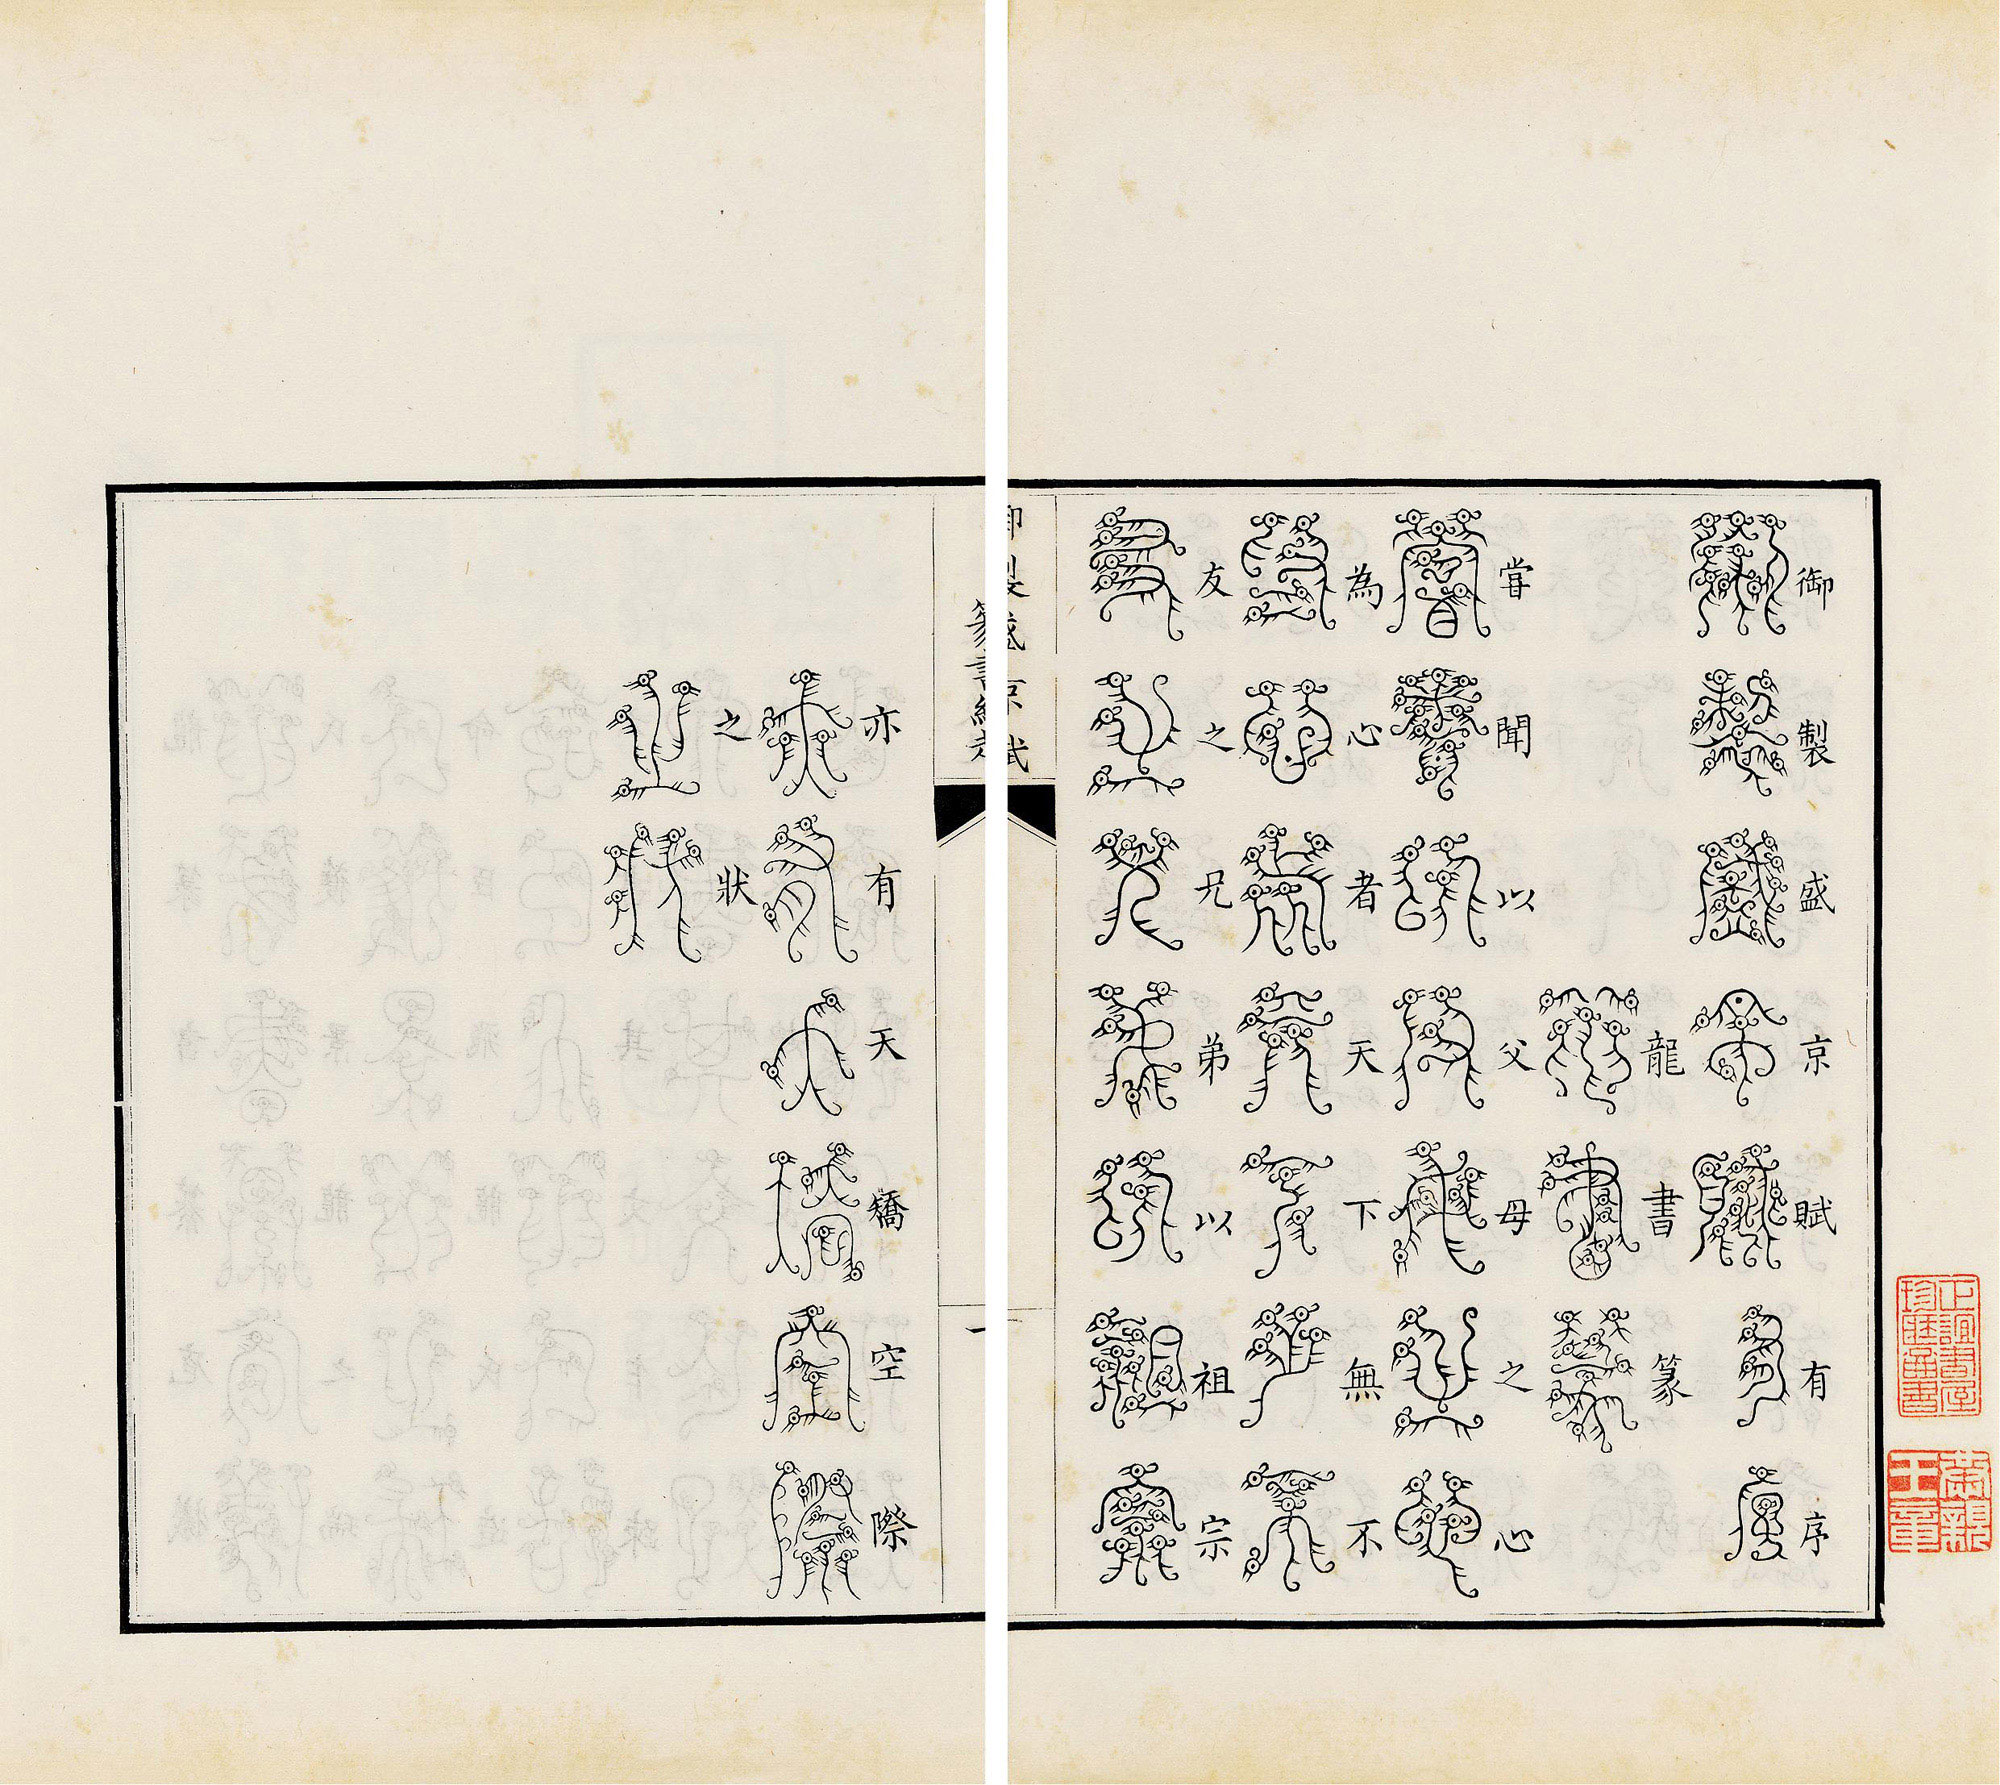 御製盛京賦有序
龍書篆
嘗聞以父母之心
為心者天下無不
友之兄弟以祖宗
御製盛京賦
篆書緣起
一
亦有天矯空際
之狀
正誼書屋
珍藏圖書
恭親
王章